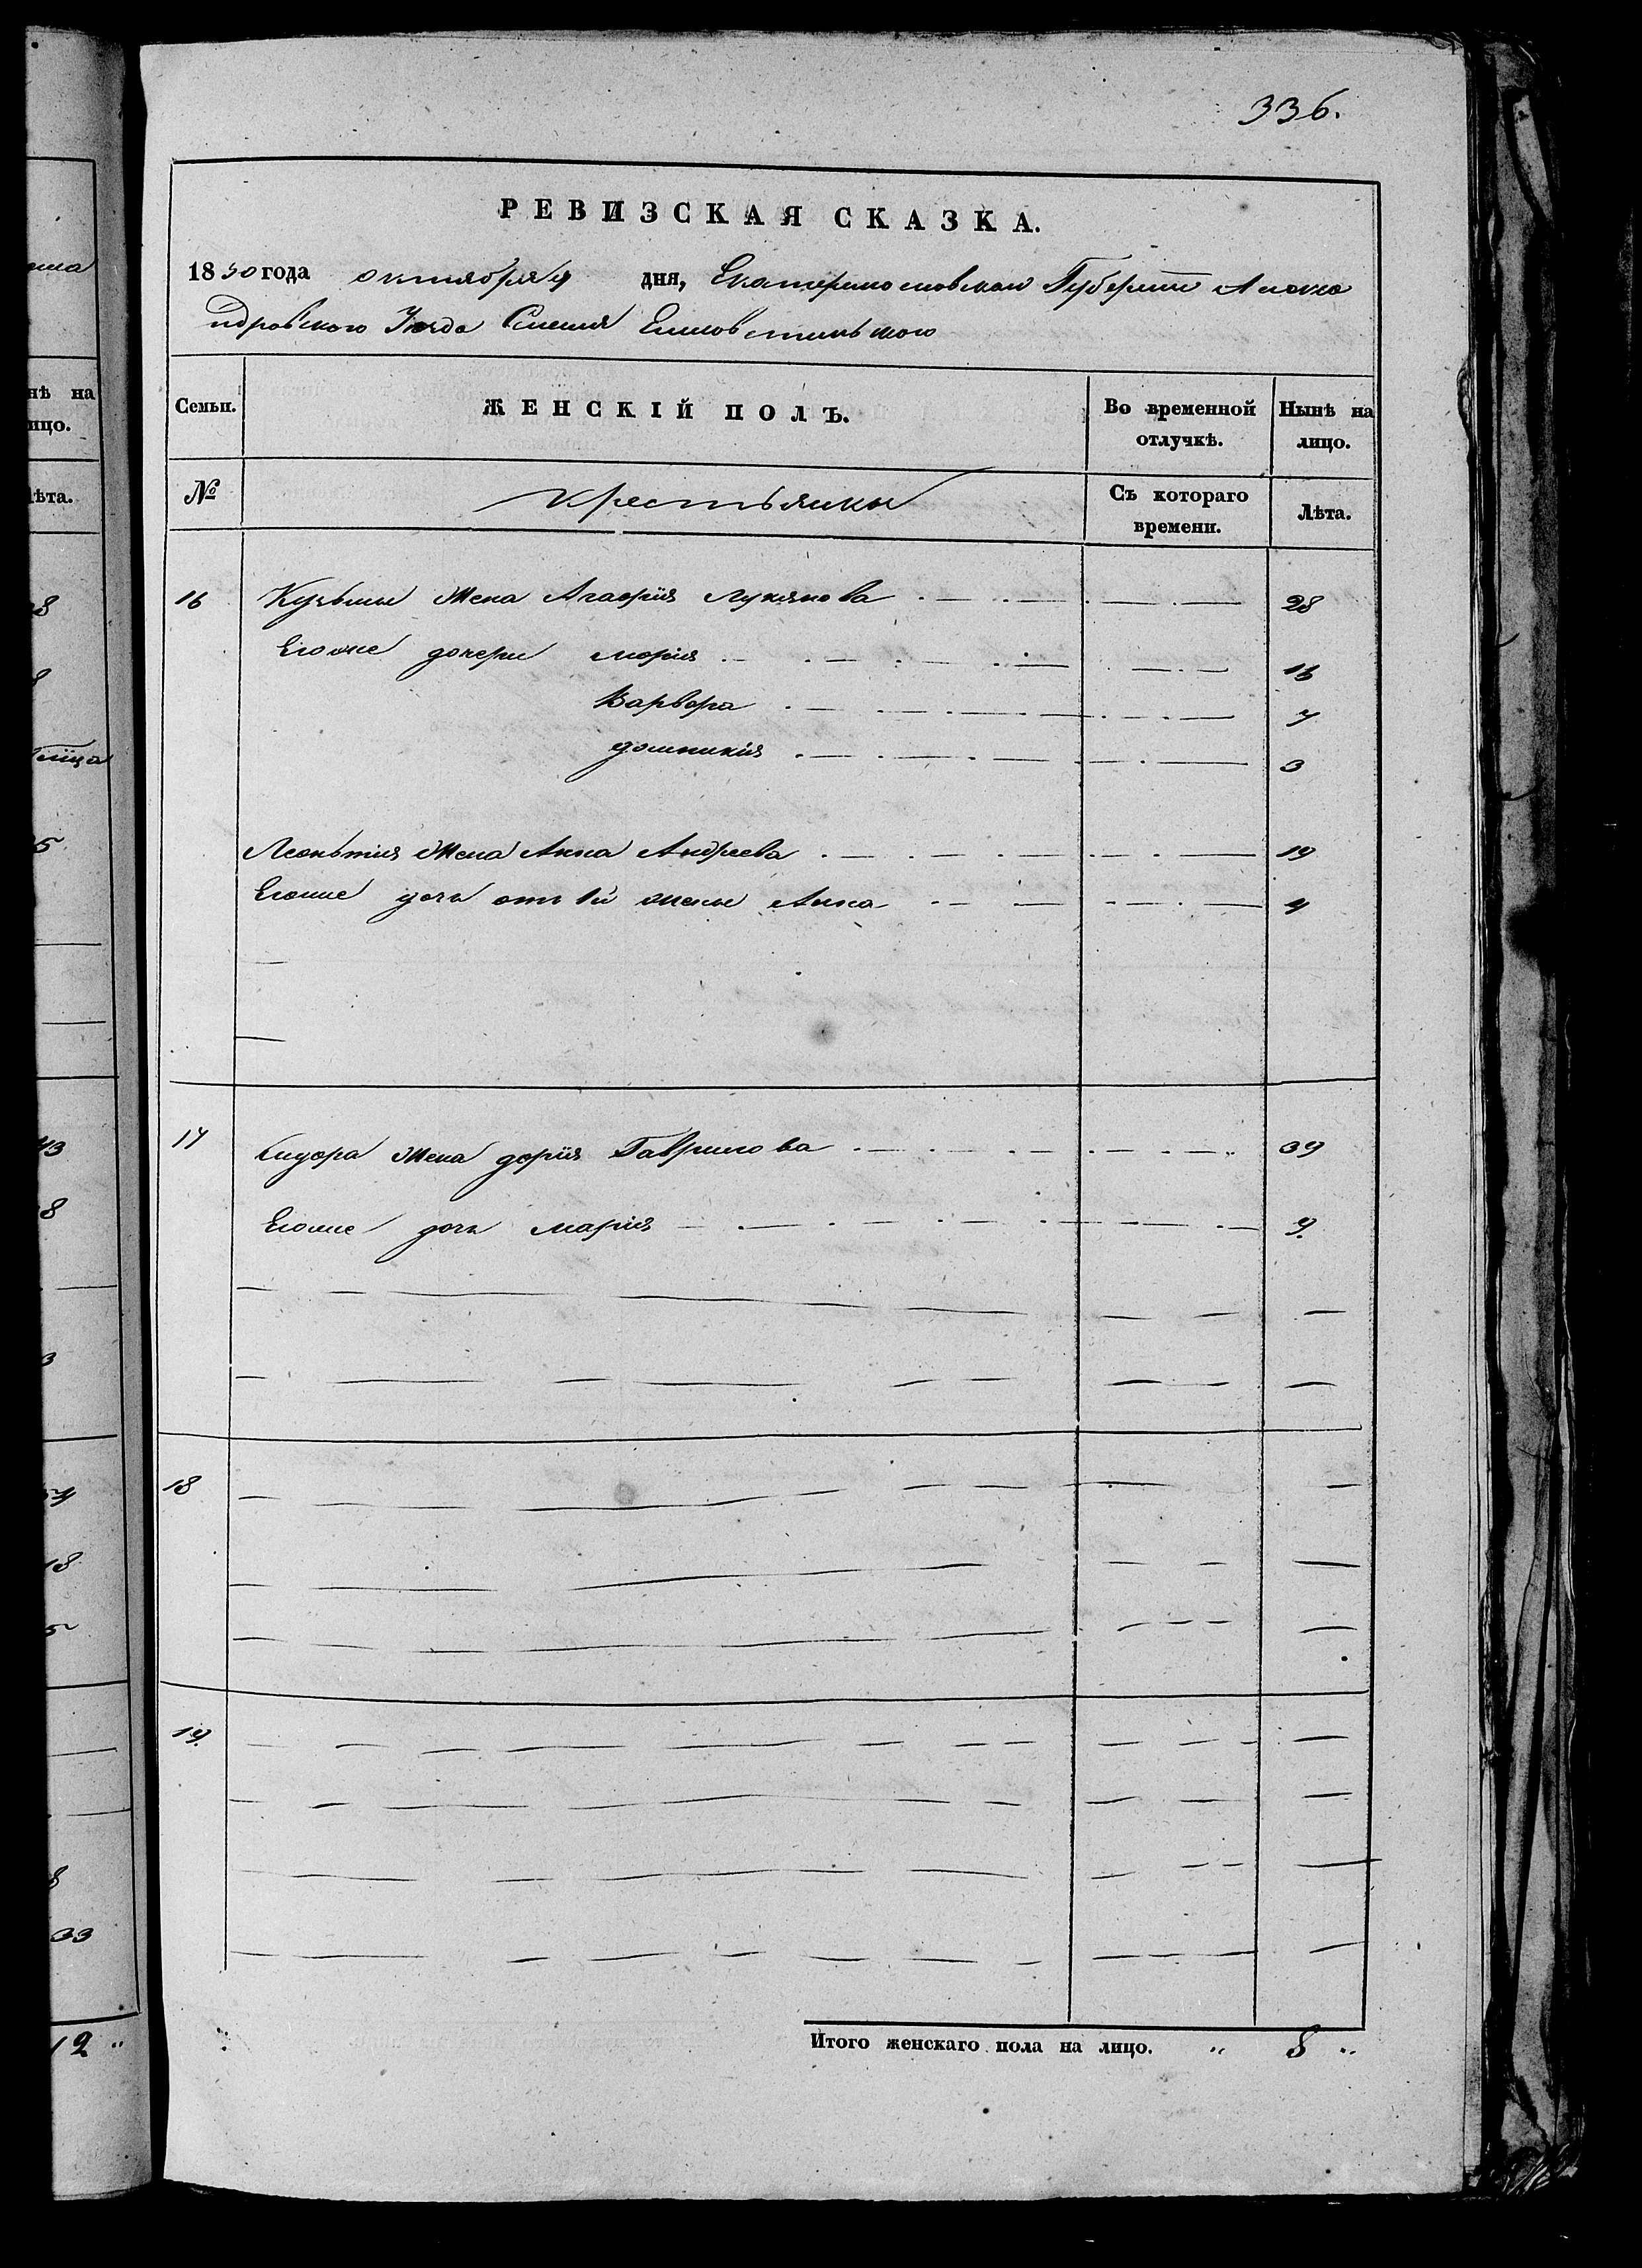 336.
РЕВИЗСКАЯ СКАЗКА.
1850 года октября 9 дня, Екатеринославской Губернiи Алекса
ндровского Уезда
Семьи. ЖЕНСКІЙ ПОЛЪ. Во временной отлучкѣ. Нынѣ на лицо.
№ Крестьянки Съ котораго времени. Лѣта.
16 Кузьмы жена Агафiя Лукянова 28
Егоже дочери Марiя 16
Варвара 7
домникiя 3
Леонътия жена Анна Андреева 19
Егоже дочь отъ 1й жены Анна 4
17 Сидора жена дарiя Гаврилова 39
Егоже дочь марiя 9.
18
19.
Итого женскаго пола на лицо. „ 8 „
нѣ на
ицо.
ѣта.
8
5
43
8
3
18
5
8
33
12 „